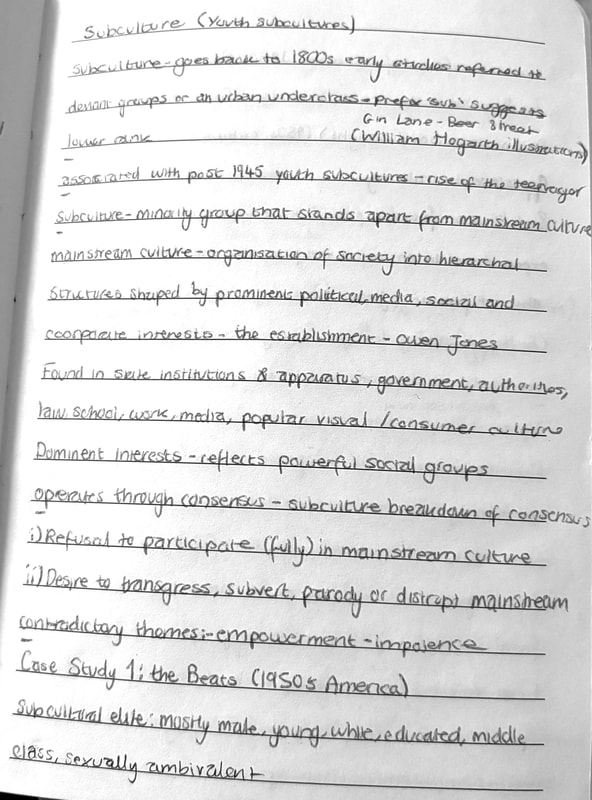 Subculture (Youth Subcultures)
subculture - goes back to 1800s early studies referred to
deviant groups or an urban underclass - prefix 'sub' suggests
Gin Lane - Beer Street
lower rank (William Hogarth illustrations)
associated with post 1945 youth subcultures - rise of the teenager
subculture - minority group that stands apart from mainstream culture
mainstream culture - organisation of society into hierarchal
structures shaped by prominent political, media, social and
cooporate interests - the establishment - owen Jones
Found in state institutions & apparatus, government, authorities,
law, school, work, media, popular visual / consumer culture
Dominent interests - reflects powerful social groups
operates through consensus - subculture breakdown of consensus
i) Refusal to participate (fully) in mainstream culture
ii) Desire to transgress, subvert, parody or distrupt mainstream
contradictory themes:- empowerment - impotence
Case Study 1: the Beats (1950s America)
Subcultural elite: mostly male, young, white, educated, middle
class, sexually ambivalent